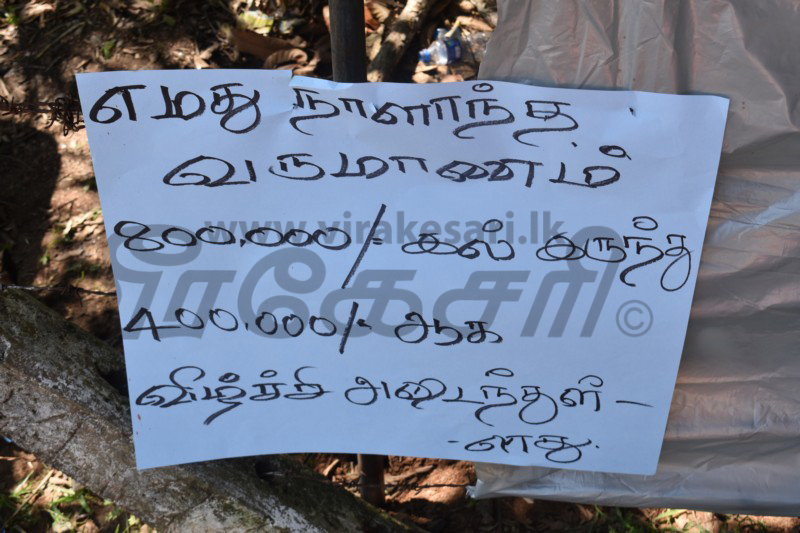 எமது நாளாந்த
வருமானம்
www.virakesari.lk
800,000/- கல் இருந்து
வீரகேசரி ©
400,000/- ஆக
வீழ்ச்சி அடைந்துள்-
-ளது.